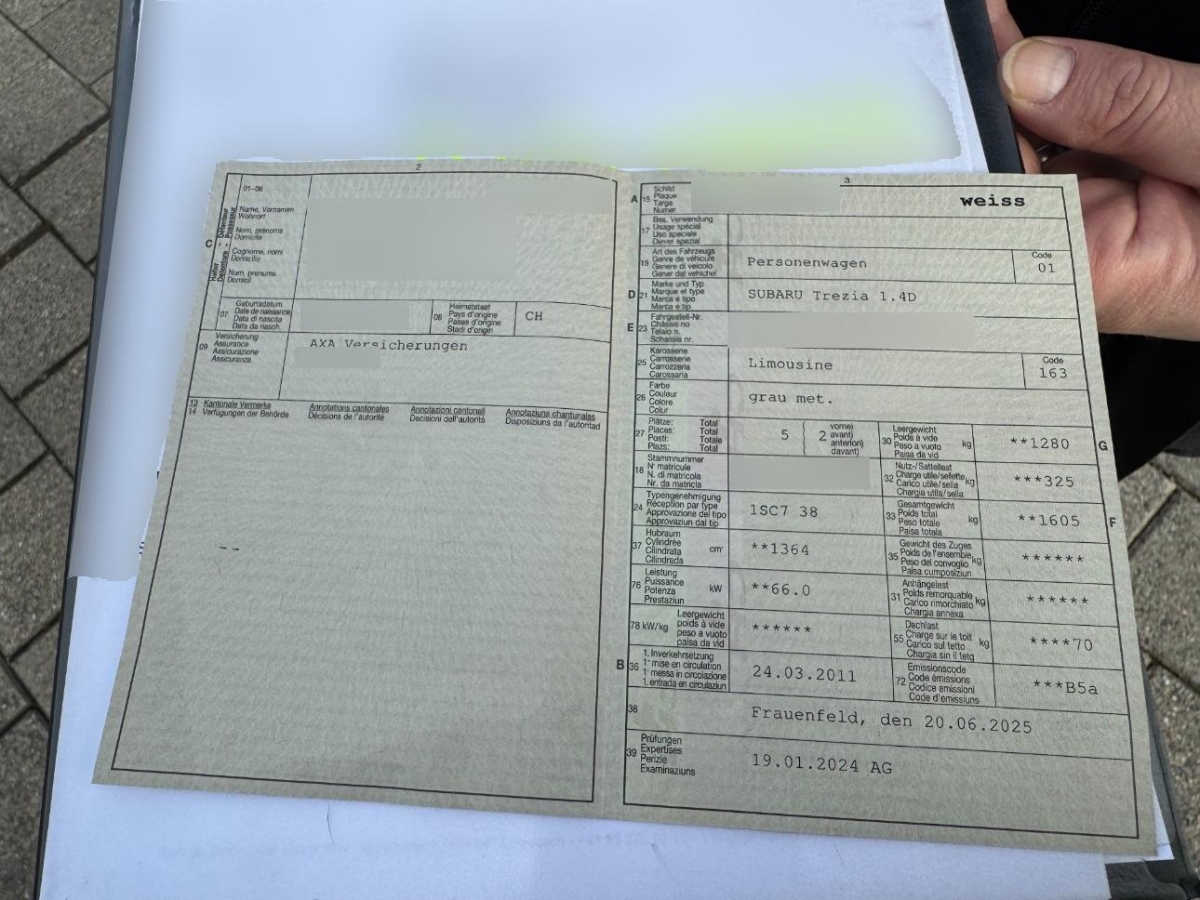 2
01-06
C
Halter
Détenteur
Detentore
Possessur
Name, Vornamen
Wohnort
Nom, prénoms
Domicile
Cognome, nomi
Domicilio
Num, prenums
Domicil
07
Geburtsdatum
Date de naissance
Data di nascita
Data da nasch.
08
Heimatstaat
Pays d'origine
Paese d'origine
Stadi d'origin
CH
09
Versicherung
Assurance
Assicurazione
Assicuranza
AXA Versicherungen
13 Kantonale Vermerke
14 Verfügungen der Behörde
Annotations cantonales
Décisions de l'autorité
Annotazioni cantonali
Decisioni dell'autorità
Annotaziuns chantunalas
Disposiziuns da l'autoritad
3
A 15
Schild
Plaque
Targa
Numer
weiss
17
Bes. Verwendung
Usage spécial
Uso speciale
Diever spezial
19
Art des Fahrzeugs
Genre de véhicule
Genere di veicolo
Gener dal vehichel
Personenwagen
Code
01
D 21
Marke und Typ
Marque et type
Marca e tipo
Marca e tip
SUBARU Trezia 1.4D
E 23
Fahrgestell-Nr.
Châssis no
Telaio n.
Schassis nr.
25
Karosserie
Carrosserie
Carrozzeria
Carossaria
Limousine
Code
163
26
Farbe
Couleur
Colore
Colur
grau met.
27
Plätze: Total
Places: Total
Posti: Totale
Plazs: Total
5 2
vorne)
avant)
anteriori)
davant)
30
Leergewicht
Poids à vide
Peso a vuoto
Paisa da vid
kg
**1280
G
18
Stammnummer
N° matricule
N. di matricola
Nr. da matricla
32
Nutz-/Sattellast
Charge utile/sellette
Carico utile/sella
Chargia utila/sella
kg
***325
24
Typengenehmigung
Réception par type
Approvazione del tipo
Approvaziun dal tip
1SC7 38
33
Gesamtgewicht
Poids total
Peso totale
Paisa totala
kg
**1605
F
37
Hubraum
Cylindrée
Cilindrata
Cilindrada
cm³
**1364
35
Gewicht des Zuges
Poids de l'ensemble
Peso del convoglio
Paisa cumposiziun
kg
******
76
Leistung
Puissance
Potenza
Prestaziun
kW
**66.0
31
Anhängelast
Poids remorquable
Carico rimorchiato
Chargia annexa
kg
******
78 kW/kg
Leergewicht
poids à vide
peso a vuoto
paisa da vid
******
55
Dachlast
Charge sur le toit
Carico sul tetto
Chargia sin il tetg
kg
****70
B 36
1. Inverkehrsetzung
1re mise en circulation
1a messa in circolazione
1. entrada en circulaziun
24.03.2011
72
Emissionscode
Code émissions
Codice emissioni
Code d'emissiuns
***B5a
38
Frauenfeld, den 20.06.2025
39
Prüfungen
Expertises
Perizie
Examinaziuns
19.01.2024 AG